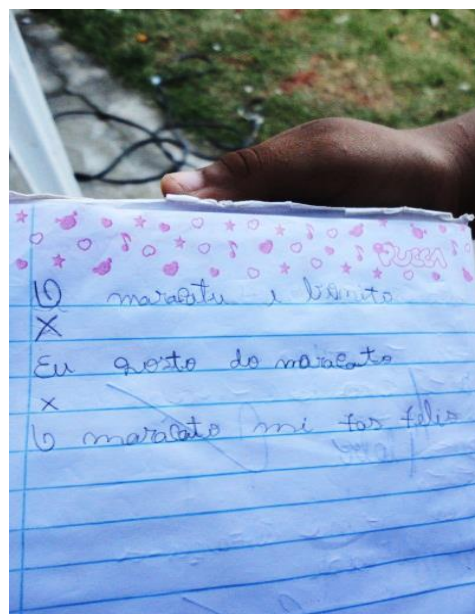 PUCCA
O maracatu e bonito
X
Eu gosto do maracato
x
O maracato mi fas felis